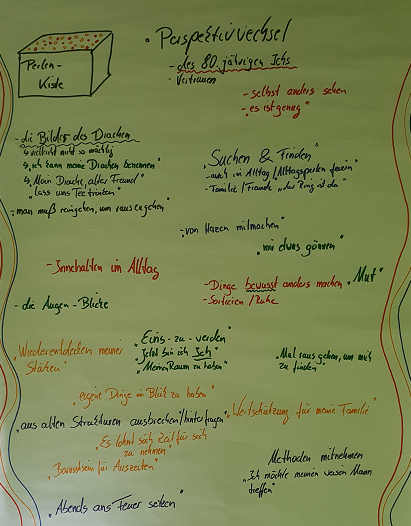 Perlen-
Kiste
Perspektivwechsel
- des 80. jährigen Ichs
- Vertrauen
- selbst anders sehen
- "es ist genug"
- die Bilder des Drachen
↳ vielleicht nicht so mächtig
↳ "ich kann meine Drachen benennen"
↳ "Mein Drache, alter Freund"
"lass uns Tee trinken"
- man muß reingehen, um rauszugehen
"Suchen & Finden"
- auch im Alltag / Alltagsperlen feiern
- Familie / Freunde "der Ring ist da"
- von Herzen mitmachen
"mir etwas gönnen"
- Innehalten im Alltag
- Dinge bewusst anders machen "Mut"
- Sortieren / Ruhe
- die Augen-Blicke
"Wiederentdecken meiner
Stärken"
"Eins-zu-werden
"Jetzt bin ich Ich"
"Meinen Raum zu haben"
"Mal raus gehen, um mich
zu finden"
"eigene Dinge im Blick zu haben"
"aus alten Strukturen ausbrechen"/hinterfragen"
"Wertschätzung für meine Familie"
"Es lohnt sich Zeit für sich
zu nehmen"
"Bewusstsein für Auszeiten"
Methoden mitnehmen
"Ich möchte meinen weisen Mann
treffen"
"Abends ans Feuer setzen"